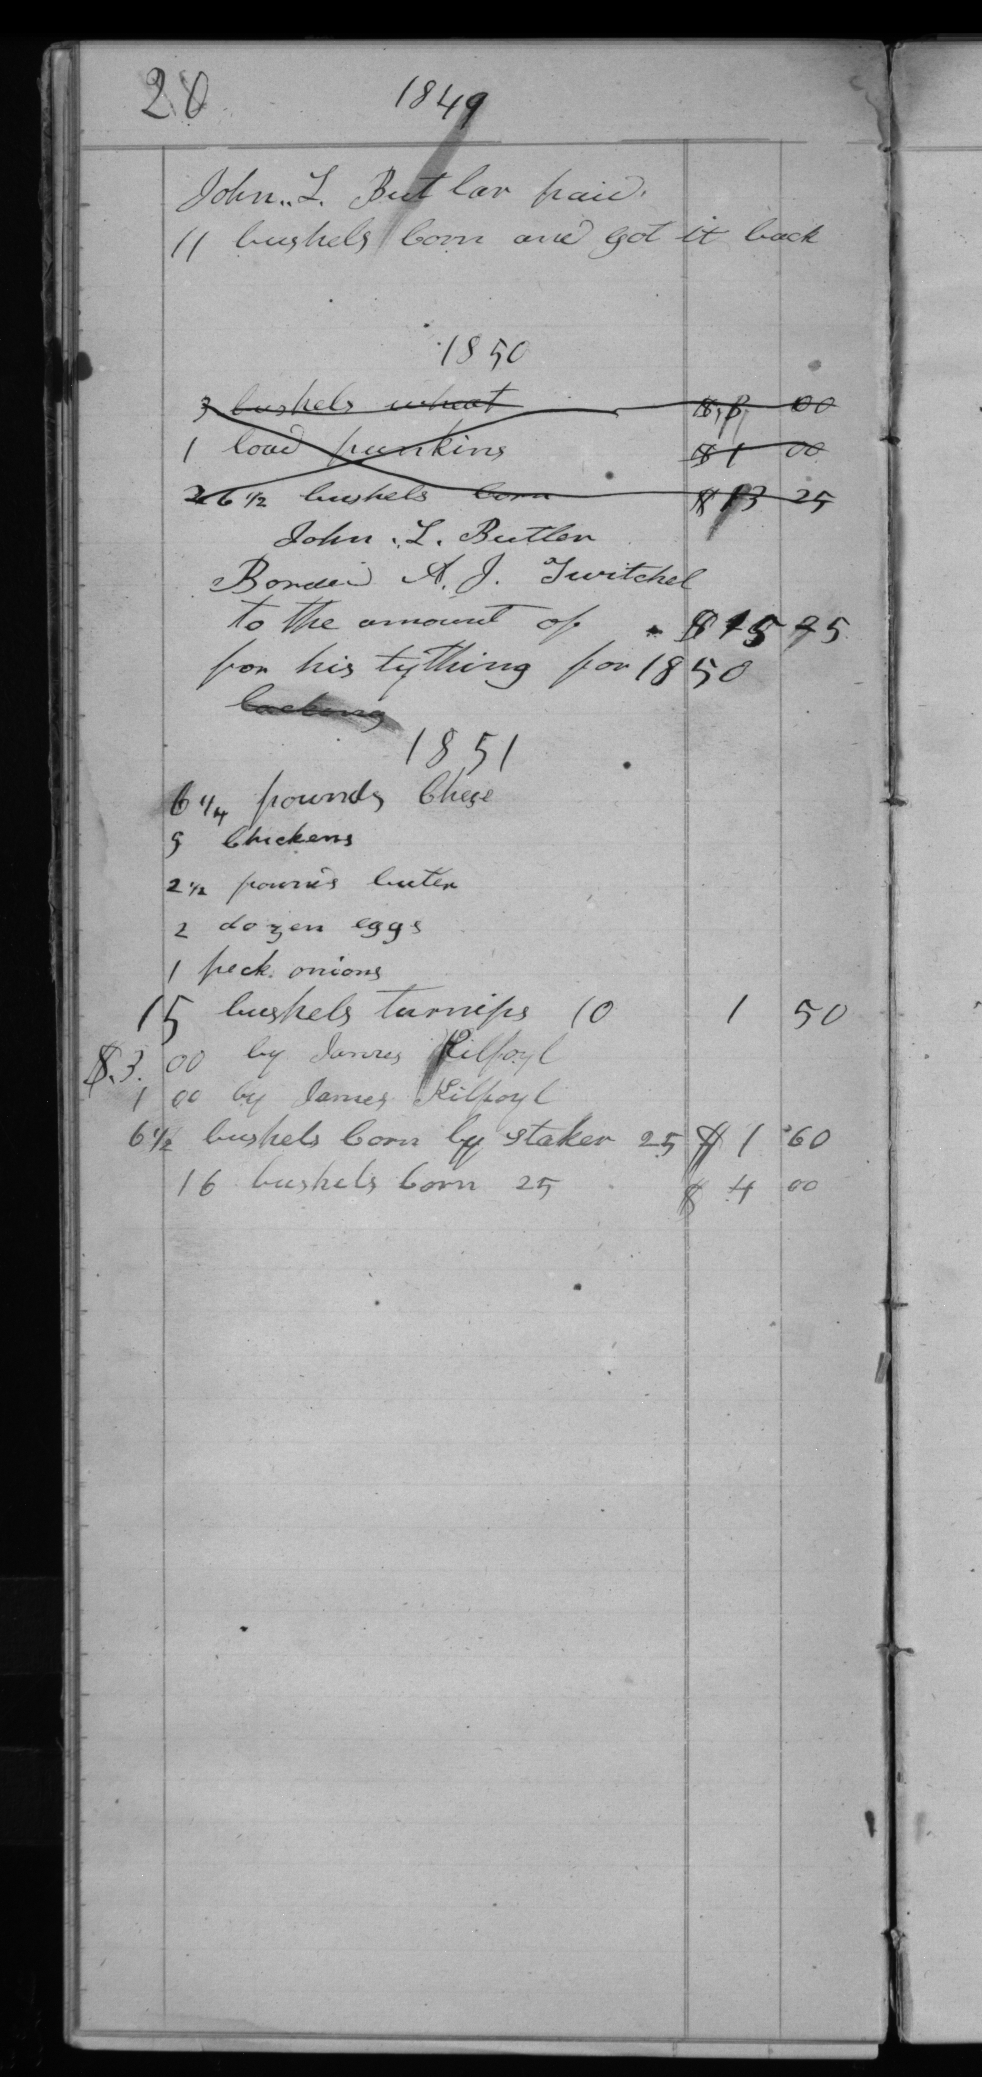 20 1849
John.. L. Butlar paid.
11 bushels Corn and got it back
1850
3 bushels wheat $ 3 00
1 load punkins $ 1 00
26 1/2 bushels Corn $ 13 25
John . L. Butler
Borded A. J. Twitchel
to the amount of $ 15 25
for his tything for 1850
lacking
1851
6 1/4 pounds Chese
9 Chickens
2 1/2 pounds buter
2 dozen eggs
1 peck onions
15 bushels turnips 10 1 50
$ 3. 00 by James Kilfoyl
1 00 by James Kilfoyl
6 1/2 bushels Corn by Staker 25 $ 1 60
16 bushels Corn 25 $ 4 00